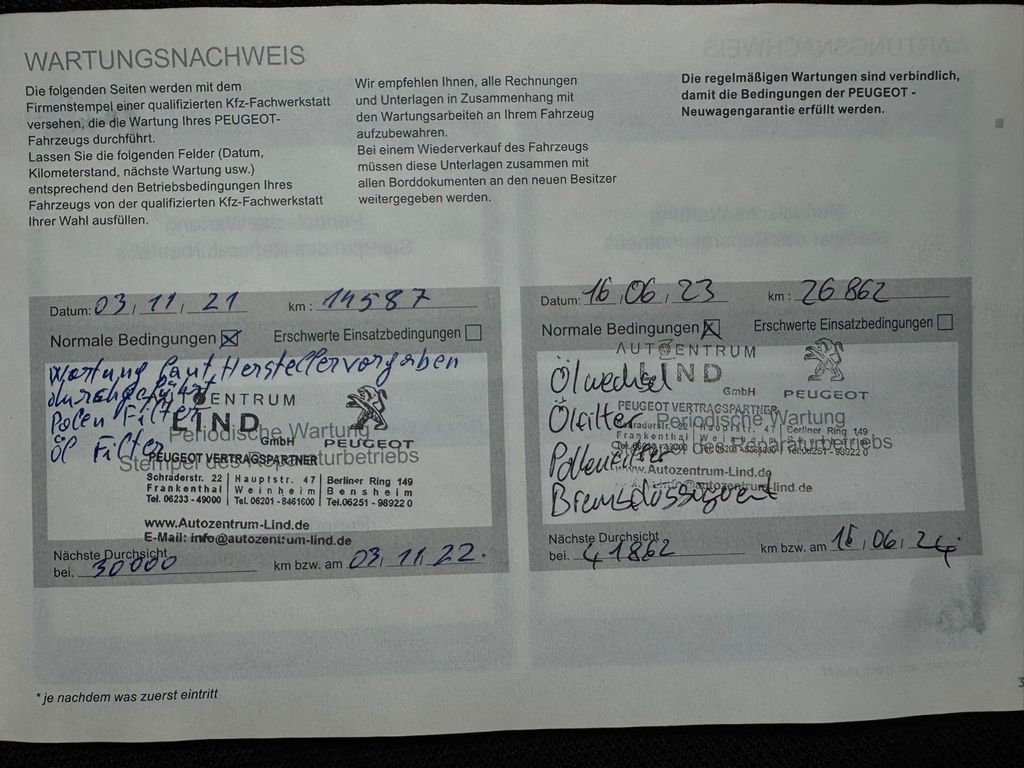 WARTUNGSNACHWEIS
Die folgenden Seiten werden mit dem
Firmenstempel einer qualifizierten Kfz-Fachwerkstatt
versehen, die die Wartung Ihres PEUGEOT-
Fahrzeugs durchführt.
Lassen Sie die folgenden Felder (Datum,
Kilometerstand, nächste Wartung usw.)
entsprechend den Betriebsbedingungen Ihres
Fahrzeugs von der qualifizierten Kfz-Fachwerkstatt
Ihrer Wahl ausfüllen.
Wir empfehlen Ihnen, alle Rechnungen
und Unterlagen in Zusammenhang mit
den Wartungsarbeiten an Ihrem Fahrzeug
aufzubewahren.
Bei einem Wiederverkauf des Fahrzeugs
müssen diese Unterlagen zusammen mit
allen Borddokumenten an den neuen Besitzer
weitergegeben werden.
Die regelmäßigen Wartungen sind verbindlich,
damit die Bedingungen der PEUGEOT -
Neuwagengarantie erfüllt werden.
Datum: 03, 11, 21 km : 14587
Normale Bedingungen Erschwerte Einsatzbedingungen
Wartung laut Herstellervorgaben
durchgeführt
Polen Filter
Öl Filter
ZENTRUM
LIND
GmbH
PEUGEOT
Periodische Wartung
Stempel des Reparaturbetriebs
PEUGEOT VERTRAGSPARTNER
Schraderstr. 22 Hauptstr. 47 Berliner Ring 149
Frankenthal Weinheim Bensheim
Tel. 06233 - 49000 Tel. 06201 - 8461600 Tel.06251 - 98922 0
www.Autozentrum-Lind.de
E-Mail: info@autozentrum-lind.de
Nächste Durchsicht
bei. 30000 km bzw. am 03, 11, 22.
Datum: 16, 06, 23 km : 26862
Normale Bedingungen Erschwerte Einsatzbedingungen
AUTOZENTRUM
LIND
GmbH
PEUGEOT
Ölwechsel
Ölfilter
PEUGEOT VERTRAGSPARTNER
Periodische Wartung
Stempel des Reparaturbetriebs
Berliner Ring 149
Tel.06251 - 98922 0
www.Autozentrum-Lind.de
info@autozentrum-lind.de
Nächste Durchsicht
bei. 41862 km bzw. am 16, 06, 24.
* je nachdem was zuerst eintritt